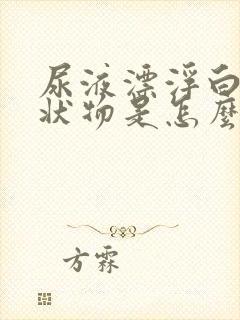 尿液漂浮白
状物是怎麼
方霖